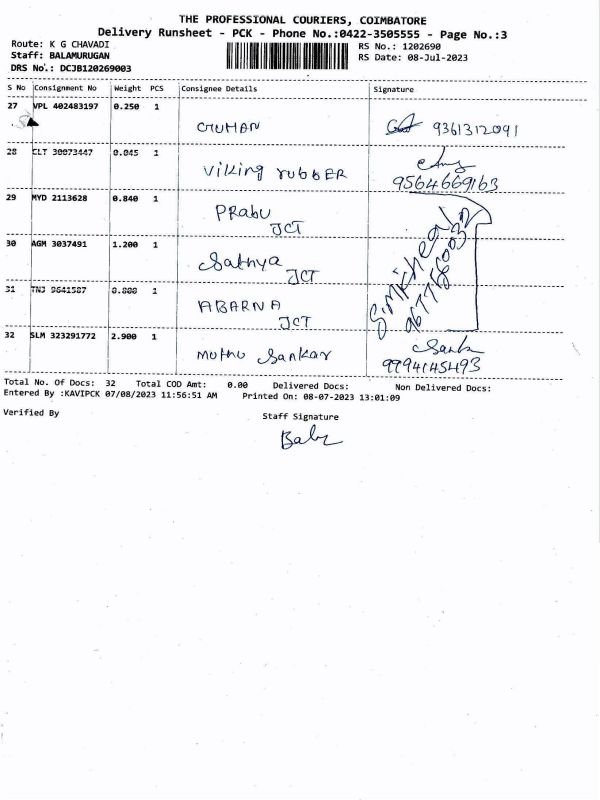 THE PROFESSIONAL COURIERS, COIMBATORE
Delivery Runsheet - PCK - Phone No.:0422-3505555 - Page No.:3
Route: K G CHAVADI RS No.: 1202690
Staff: BALAMURUGAN RS Date: 08-Jul-2023
DRS No.: DCJB120269003
S No Consignment No Weight PCS Consignee Details Signature
27 VPL 402483197 0.250 1
9361312091
28 CLT 30073447 0.045 1
Viking rubber
9564669163
29 MYD 2113628 0.840 1
Prabu
JCT
30 AGM 3037491 1.200 1
Sathya
JCT
31 TNJ 9641587 0.800 1
ABARNA
JCT
32 SLM 323291772 2.900 1
Muthu Sankar
9994145493
Total No. Of Docs: 32 Total COD Amt: 0.00 Delivered Docs: Non Delivered Docs:
Entered By :KAVIPCK 07/08/2023 11:56:51 AM Printed On: 08-07-2023 13:01:09
Verified By Staff Signature